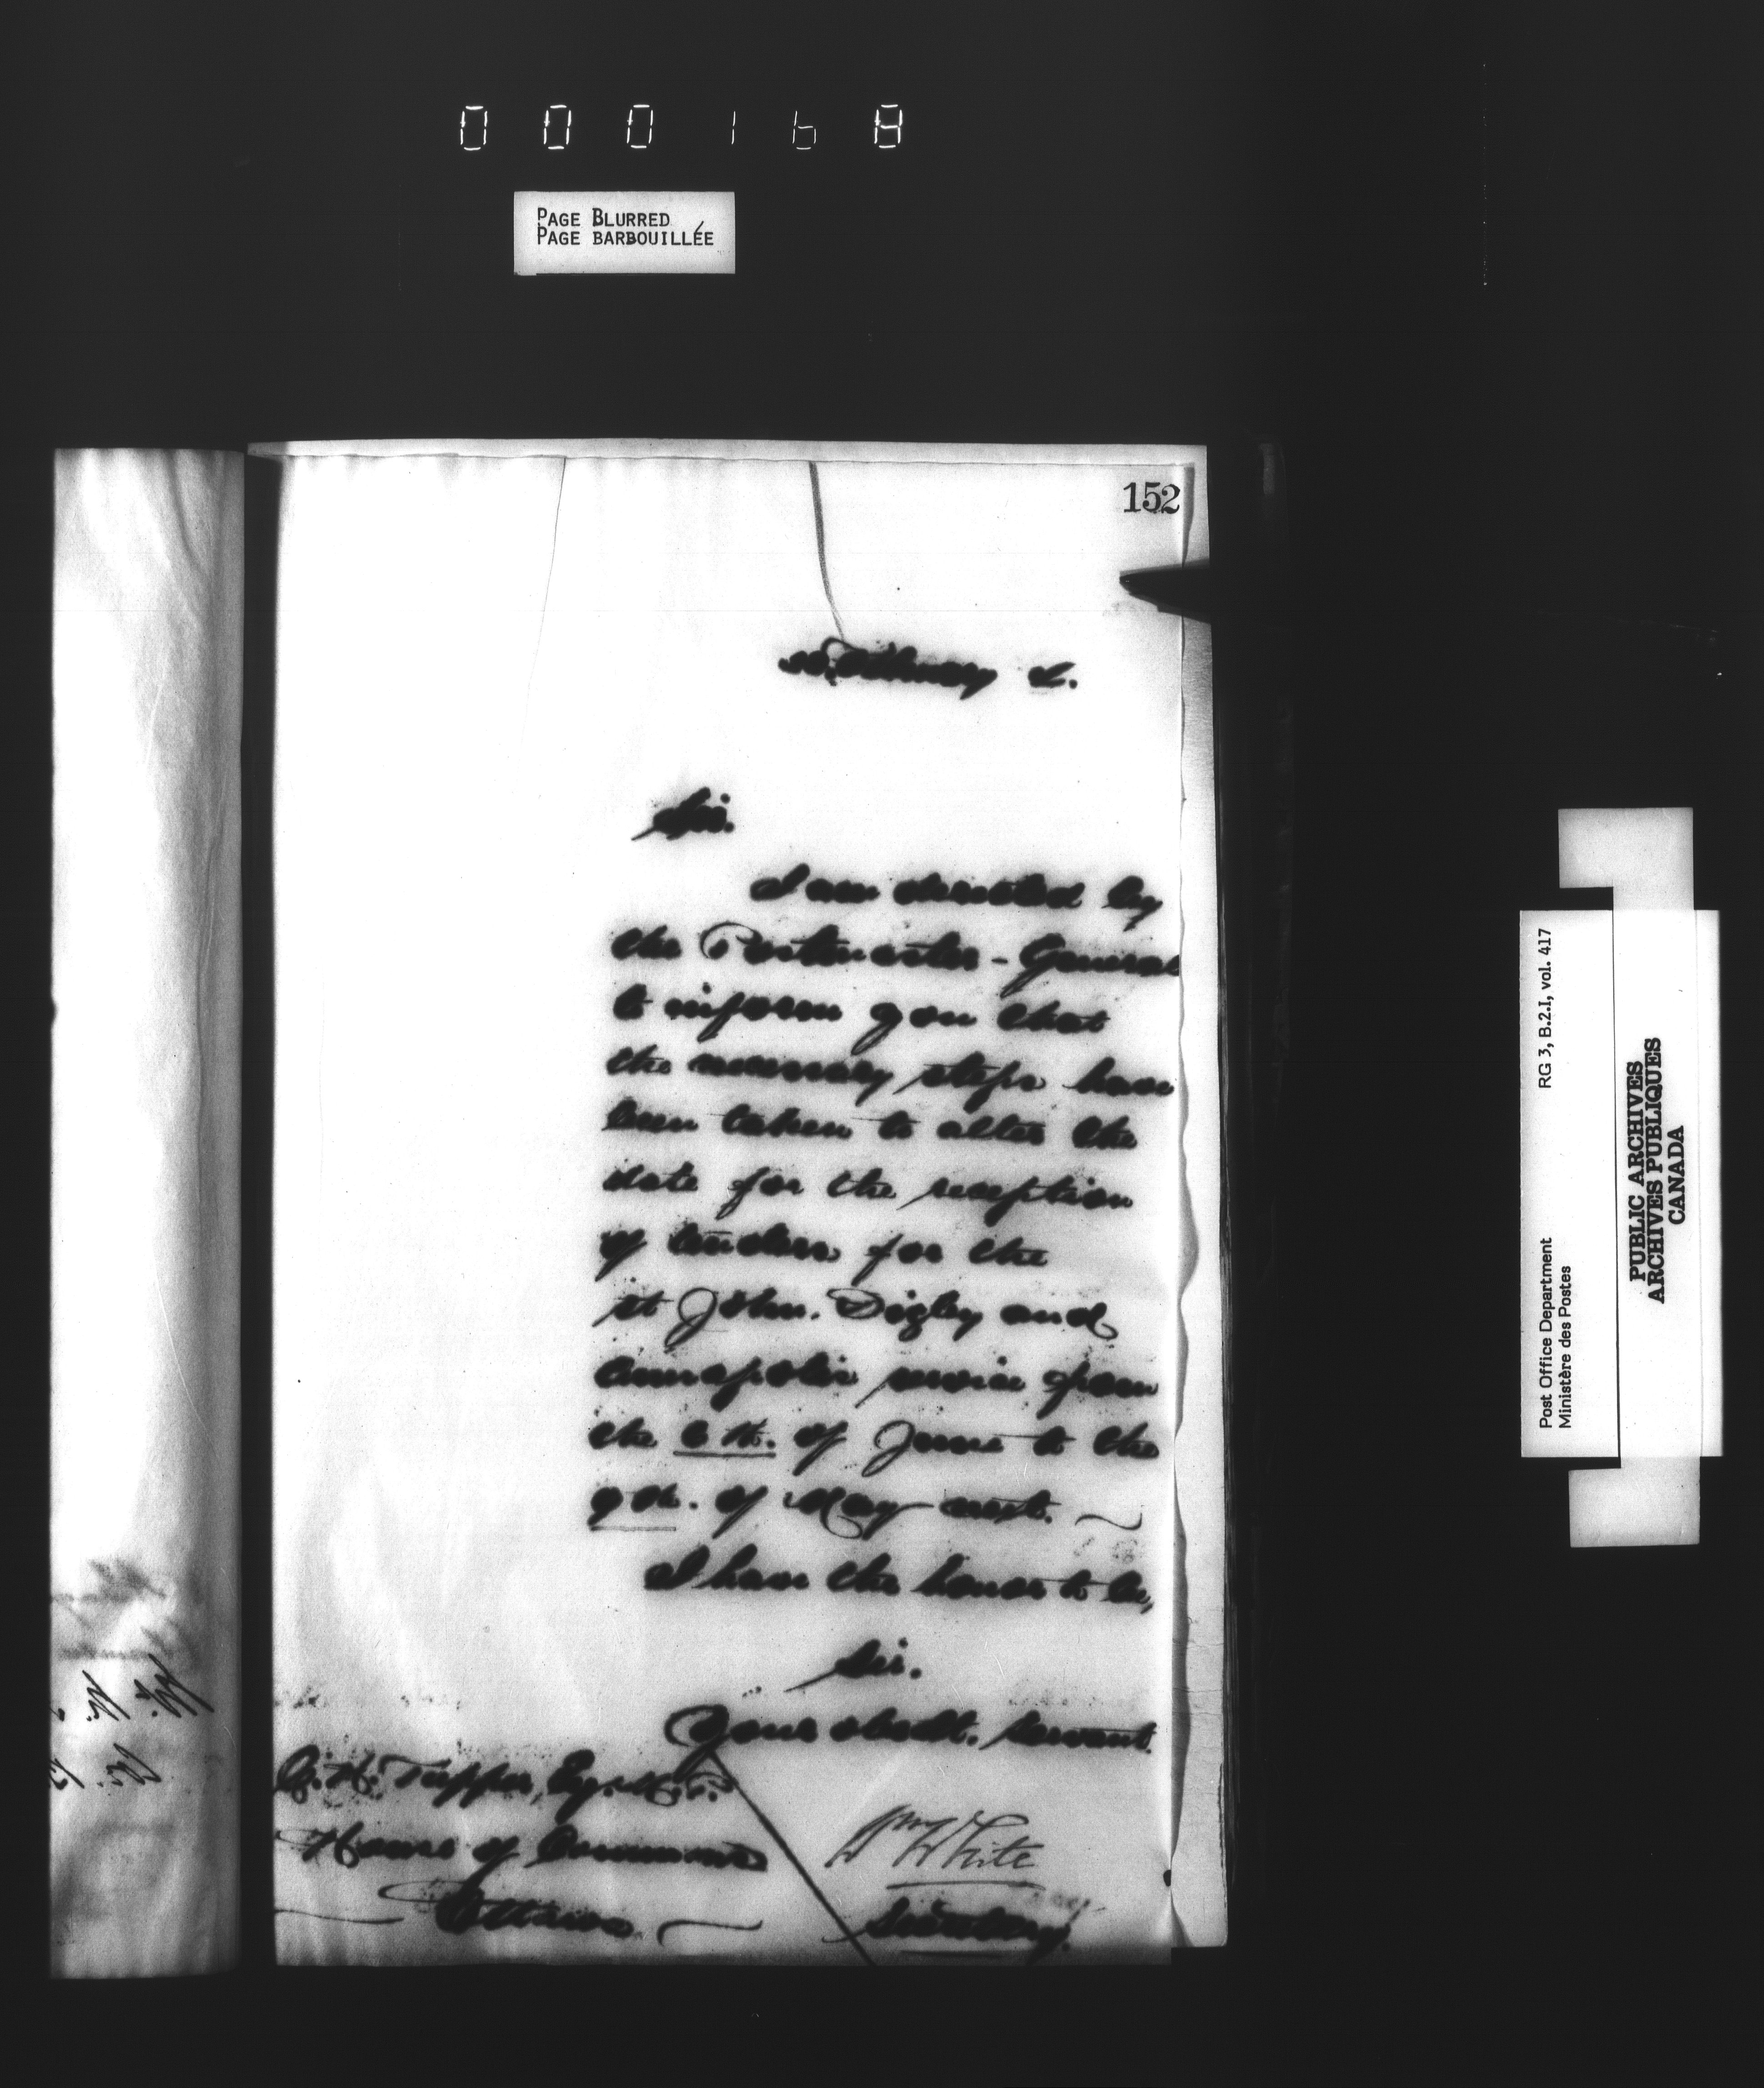 000168
PAGE BLURRED
PAGE BARBOUILLÉE
152
February
Sir.
I am directed by
the Postmaster-General
to inform you that
the necessary steps have
been taken to alter the
date for the reception
of tenders for the
St John. Digby and
Annapolis service from
the 6th. of June to the
9th. of May next.
I have the honor to be,
Sir.
Your obedt. Servant.
C. H. Tupper, Esq. M.P.
House of Commons
Ottawa
Wm White
Secretary.
Post Office Department RG 3, B.2.I, vol. 417
Ministère des Postes
PUBLIC ARCHIVES
ARCHIVES PUBLIQUES
CANADA